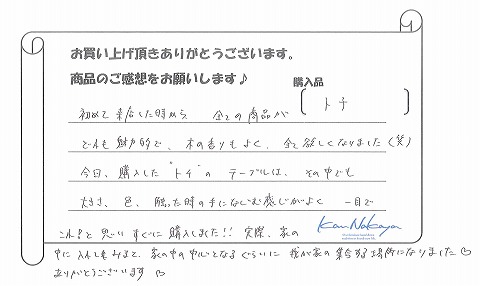 お買い上げ頂きありがとうございます。
商品のご感想をお願いします♪
購入品
トチ
初めて来店した時から 全ての商品が
とても魅力的で、木の香りもよく、全て欲しくなりました(笑)
今日、購入した"トチ"の テーブルは、その中でも
大きさ、色、触った時の手になじむ感じがよく 一目で
これ!と思い すぐに購入しました!! 実際、家の
中に入れてみると、家の中の中心となるぐらいに 我が家の集合する場所になりました♡
ありがとうございます♡
KanNakaya